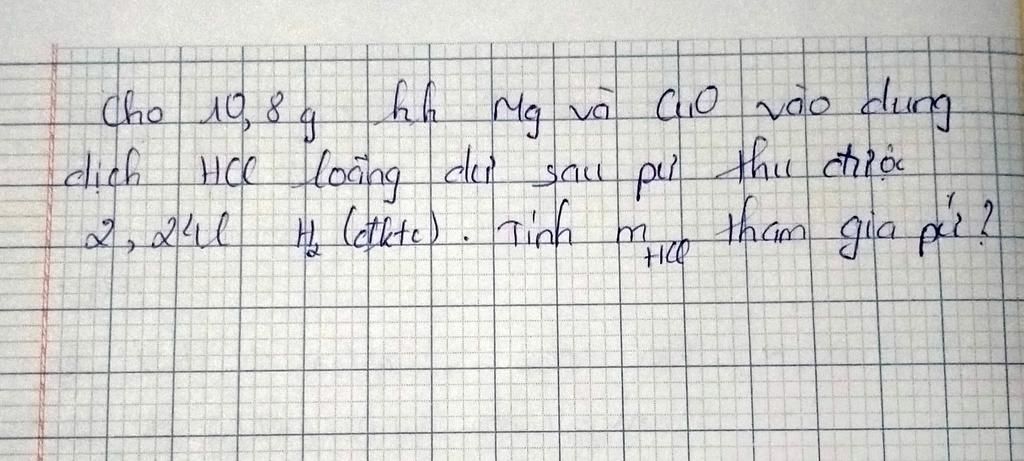 Cho 10,8g hh Mg và CuO vào dung
dịch HCl loãng dư sau pư thu được
2,24l H₂ (đktc). Tính m HCl tham gia pứ?